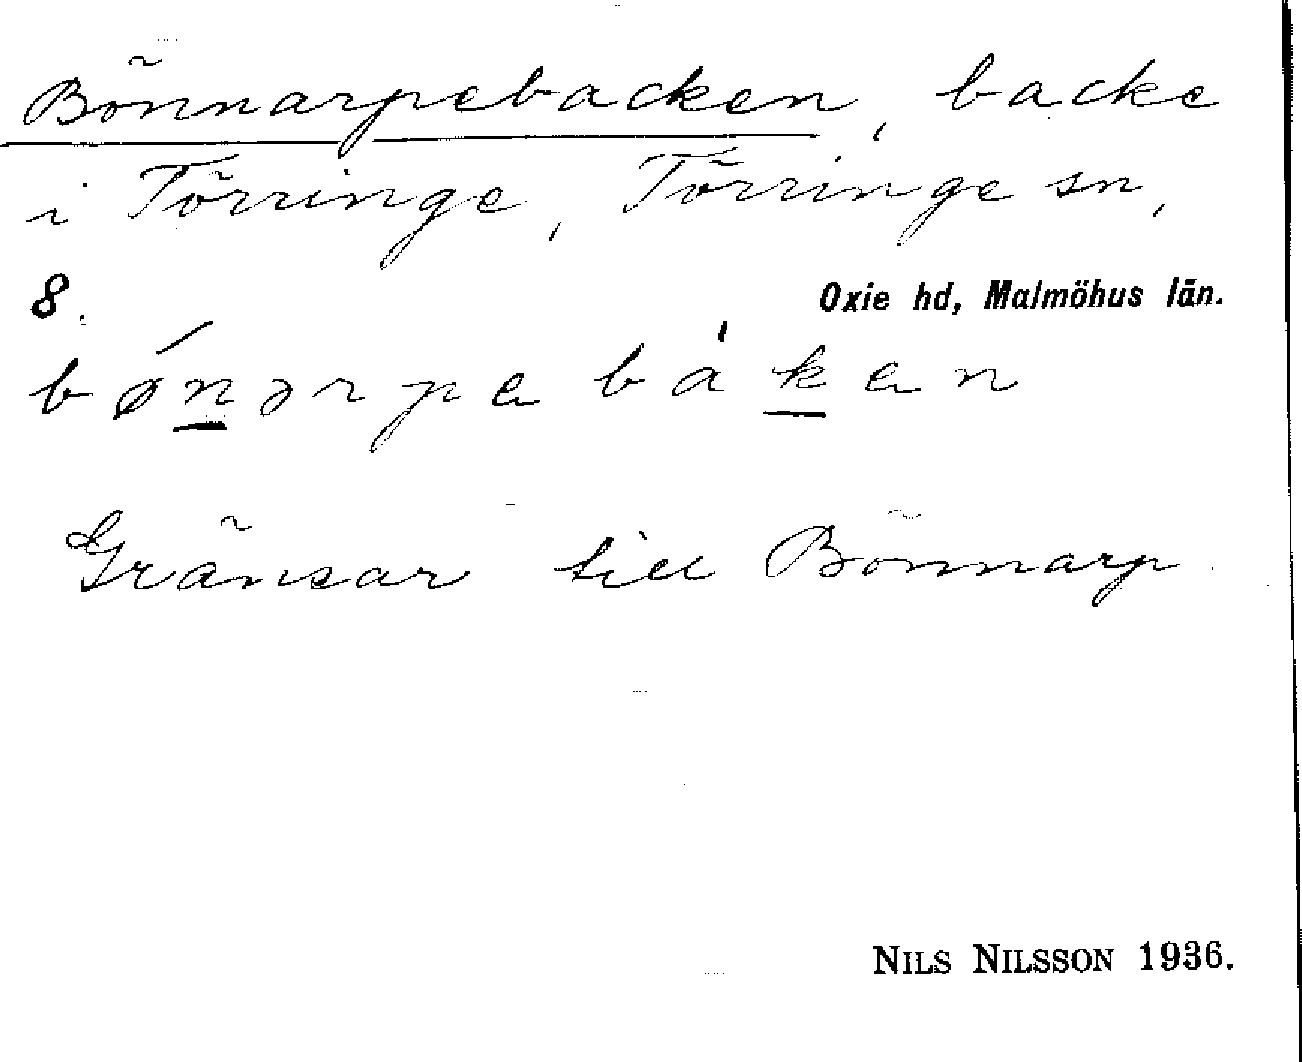 Bönnarpebacken, backe
i Törringe, Törringe sn,
8. Oxie hd, Malmöhus län.
bǿn̲ərpa bàk̲an
Gränsar till Bönnarp.
NILS NILSSON 1936.